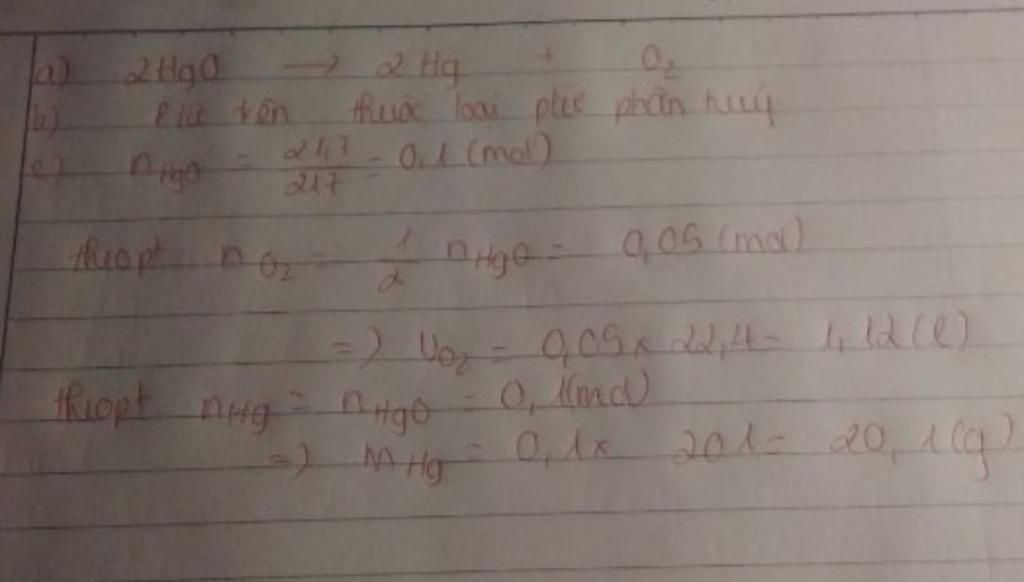 a) 2HgO → 2Hg + O₂
b) Pứ trên thuộc loại pứ phân huỷ
c) nHgO = 21,7/217 = 0,1 (mol)
theo pt nO₂ = 1/2 nHgO = 0,05 (mol)
=> VO₂ = 0,05 x 22,4 = 1,12 (l)
theo pt nHg = nHgO = 0,1 (mol)
=> mHg = 0,1 x 201 = 20,1 (g)